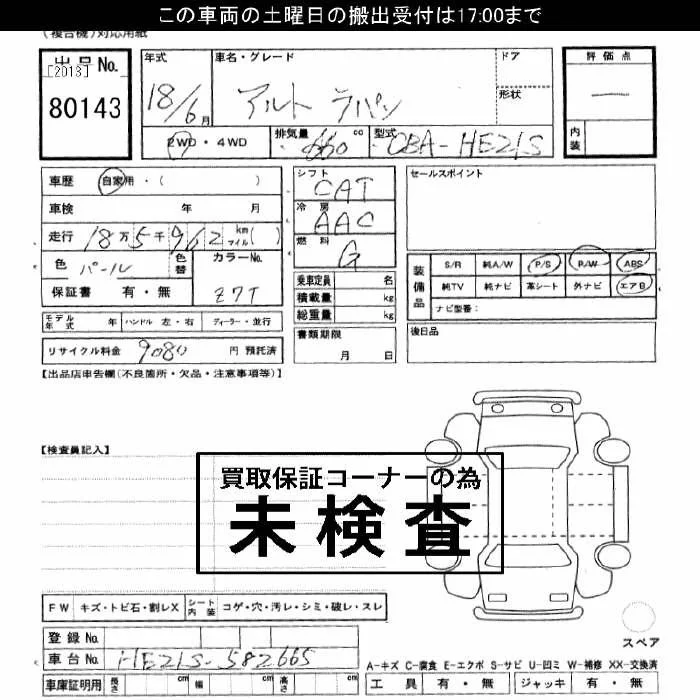 この車両の土曜日の搬出受付は17:00まで
(複合機)対応用紙
出品No. [2013]
80143
年式 18/6月
車名・グレード アルト ラパン
ドア
形状
評価点
内装
2WD・4WD
排気量 660 cc
型式 CBA-HE21S
車歴 自家用・( )
車検 年 月
走行 18万5千962 km マイル( )
色 パール
色替
カラーNo. Z7T
保証書 有・無
モデル年式 年 ハンドル 左・右 ディーラー・並行
リサイクル料金 9080 円 預託済
シフト CAT
冷房 AAC
燃料 G
乗車定員 名
積載量 kg
総重量 kg
書類期限
月 日
セールスポイント
装備品
S/R 純A/W P/S P/W ABS
純TV 純ナビ 革シート 外ナビ エアB
ナビ型番:
後日品
【出品店申告欄(不良箇所・欠品・注意事項等)】
【検査員記入】
買取保証コーナーの為
未検査
FW キズ・トビ石・割レX シート内装 コゲ・穴・汚レ・シミ・破レ・スレ
登録No.
車台No. HE21S-582665
車庫証明用 長さ cm 幅 cm 高さ cm
スペア
A-キズ C-腐食 E-エクボ S-サビ U-凹ミ W-補修 XX-交換済
工具 有・無 ジャッキ 有・無